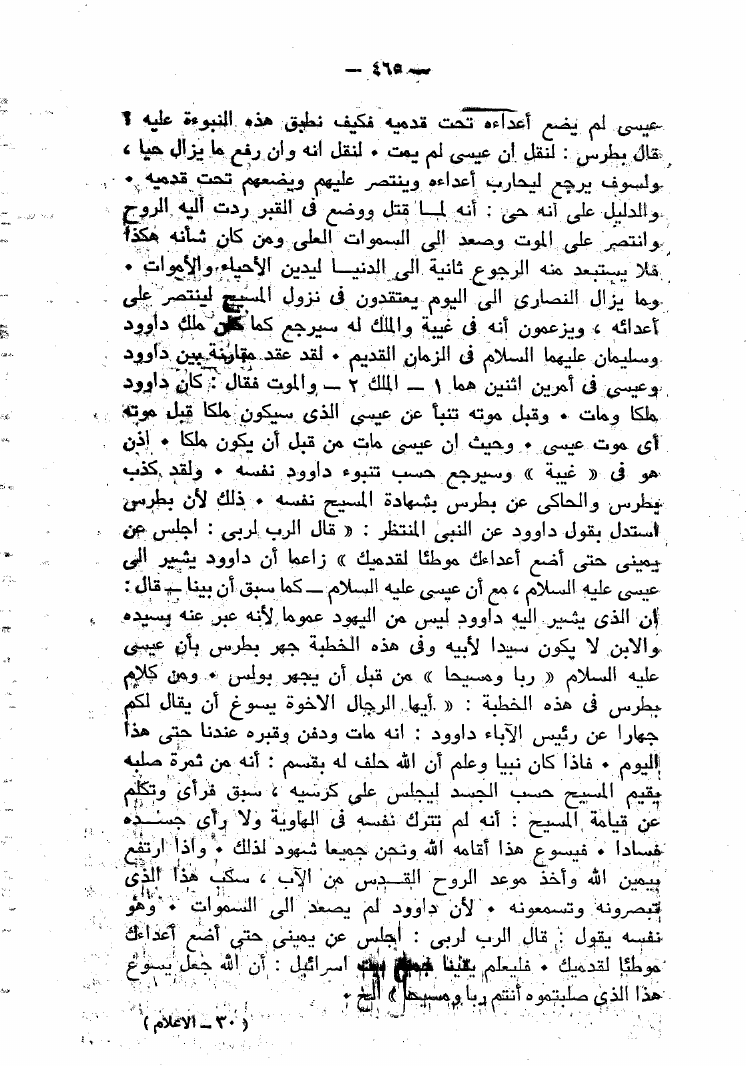 — ٤٦٥ —
عيسى لم يضع أعداءه تحت قدميه فكيف نطبق هذه النبوءة عليه ؟
قال بطرس : لنقل أن عيسى لم يمت • لنقل انه وان رفع ما يزال حيا ،
ولسوف يرجع ليحارب أعداءه وينتصر عليهم ويضعهم تحت قدميه •
والدليل على أنه حى : أنه لمــا قتل ووضع فى القبر ردت اليه الروح
وانتصر على الموت وصعد الى السموات العلى ومن كان شأنه هكذا
فلا يستبعد منه الرجوع ثانية الى الدنيــا ليدين الأحياء والأموات •
وما يزال النصارى الى اليوم يعتقدون فى نزول المسيح لينتصر على
أعدائه ، ويزعمون أنه فى غيبة والملك له سيرجع كما كان ملك داوود
وسليمان عليهما السلام فى الزمان القديم • لقد عقد مقارنة بين داوود
وعيسى فى أمرين اثنين هما ١ – الملك ٢ – والموت فقال : كان داوود
ملكا ومات • وقبل موته تنبأ عن عيسى الذى سيكون ملكا قبل موته
أى موت عيسى • وحيث ان عيسى مات من قبل أن يكون ملكا • اذن
هو فى « غيبة » وسيرجع حسب تنبوء داوود نفسه • ولقد كذب
بطرس والحاكى عن بطرس بشهادة المسيح نفسه • ذلك لأن بطرس
استدل بقول داوود عن النبى المنتظر : « قال الرب لربى : اجلس عن
يمينى حتى أضع أعداءك موطئا لقدميك » زاعما أن داوود يشير الى
عيسى عليه السلام ، مع أن عيسى عليه السلام – كما سبق أن بينا – قال :
ان الذى يشير اليه داوود ليس من اليهود عموما لأنه عبر عنه بسيده
والابن لا يكون سيدا لأبيه وفى هذه الخطبة جهر بطرس بأن عيسى
عليه السلام « ربا ومسيحا » من قبل أن يجهر بولس • ومن كلام
بطرس فى هذه الخطبة : « أيها الرجال الاخوة يسوغ أن يقال لكم
جهارا عن رئيس الآباء داوود : انه مات ودفن وقبره عندنا حتى هذا
اليوم • فاذا كان نبيا وعلم أن الله حلف له بقسم : أنه من ثمرة صلبه
يقيم المسيح حسب الجسد ليجلس على كرسيه ، سبق فرأى وتكلم
عن قيامة المسيح : أنه لم تترك نفسه فى الهاوية ولا رأى جســده
فسادا • فيسوع هذا أقامه الله ونحن جميعا شهود لذلك • واذا ارتفع
بيمين الله وأخذ موعد الروح القــدس من الآب ، سكب هذا الذى
تبصرونه وتسمعونه • لأن داوود لم يصعد الى السموات • وهو
نفسه يقول : قال الرب لربى : اجلس عن يمينى حتى أضع أعداءك
موطئا لقدميك • فليعلم يقينا جميع بيت اسرائيل : أن الله جعل يسوع
هذا الذى صلبتموه أنتم ربا ومسيحا » الخ •
( ٣٠ – الاعلام )